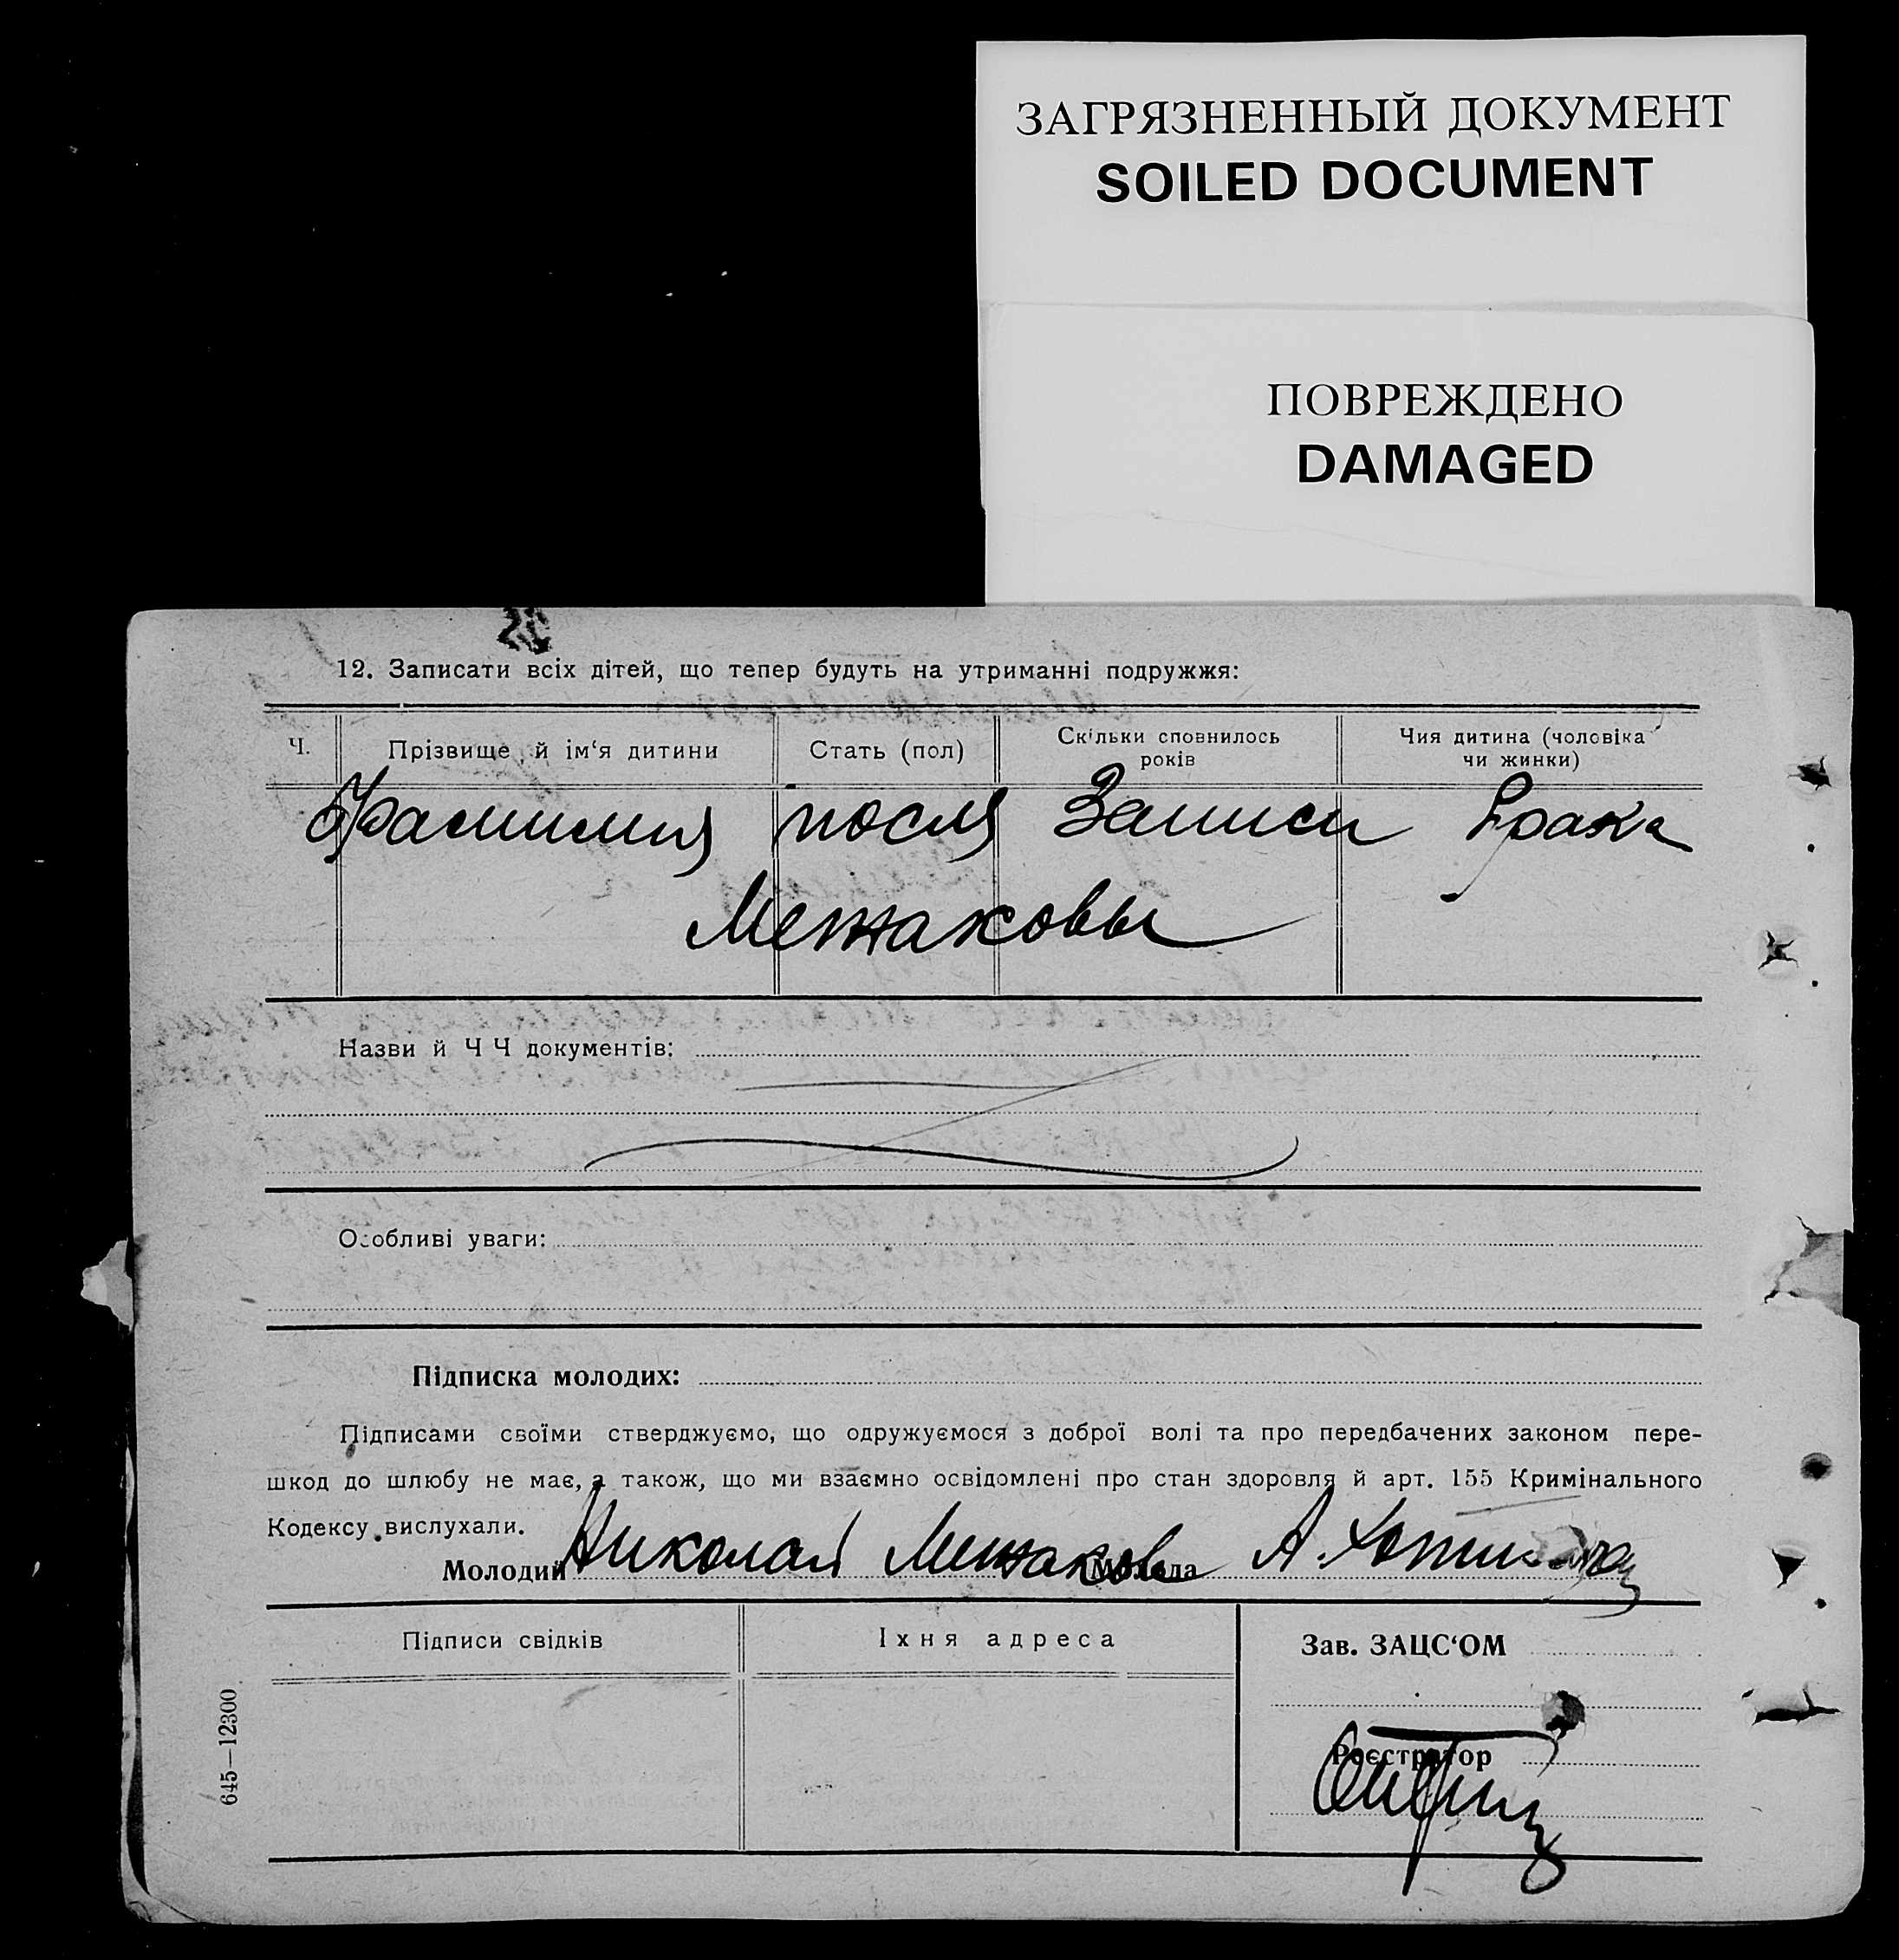 ЗАГРЯЗНЕННЫЙ ДОКУМЕНТ
SOILED DOCUMENT
ПОВРЕЖДЕНО
DAMAGED
12. Записати всіх дітей, що тепер будуть на утриманні подружжя:
Ч.
Прізвище й ім‘я дитини
Стать (пол)
Скільки сповнилось
років
Чия дитина (чоловіка
чи жинки)
Фамилия после Записи Брака
Межаковы
Назви й Ч Ч документів:
Особливі уваги:
Підписка молодих:
Підписами своїми стверджуємо, що одружуємося з доброї волі та про передбачених законом пере-
шкод до шлюбу не має, а також, що ми взаємно освідомлені про стан здоровля й арт. 155 Кримінального
Кодексу вислухали.
Молодий Николай Межаков Молода А.
Підписи свідків
Їхня адреса
Зав. ЗАЦС‘ОМ
Реєстратор
645—12300